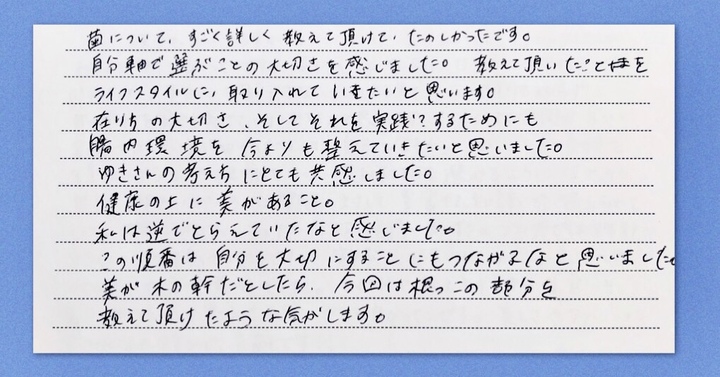 菌について、すごく詳しく教えて頂けて、たのしかったです。
自分軸で選ぶことの大切さを感じました。教えて頂いたことを
ライフスタイルに取り入れていきたいと思います。
在り方の大切さ、そしてそれを実践?するためにも
腸内環境を今よりも整えていきたいと思いました。
ゆきさんの考え方にとても共感しました。
健康の上に美があること。
私は逆でとらえていたなと感じました。
この順番は自分を大切にすることにもつながるなと思いました。
美が木の幹だとしたら、今回は根っこの部分を
教えて頂けたような気がします。